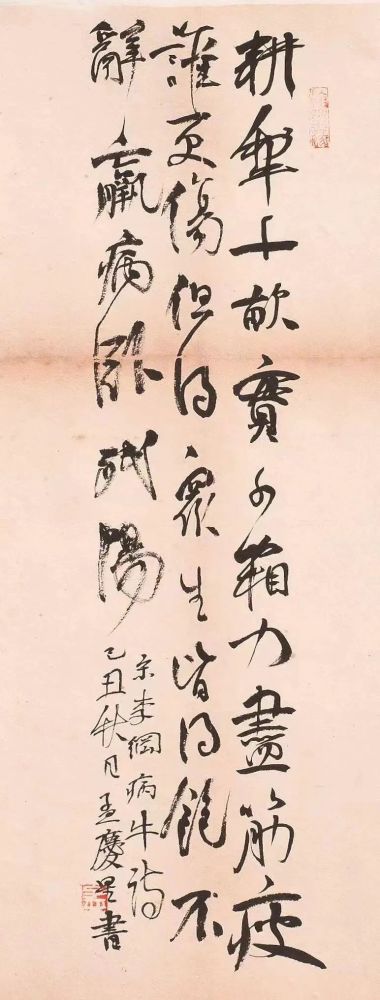 耕犁千畝實千箱力盡筋疲
誰更傷但得眾生皆得飽不
辭羸病臥殘陽
宋李綱病牛詩
己丑秋月孟慶星書